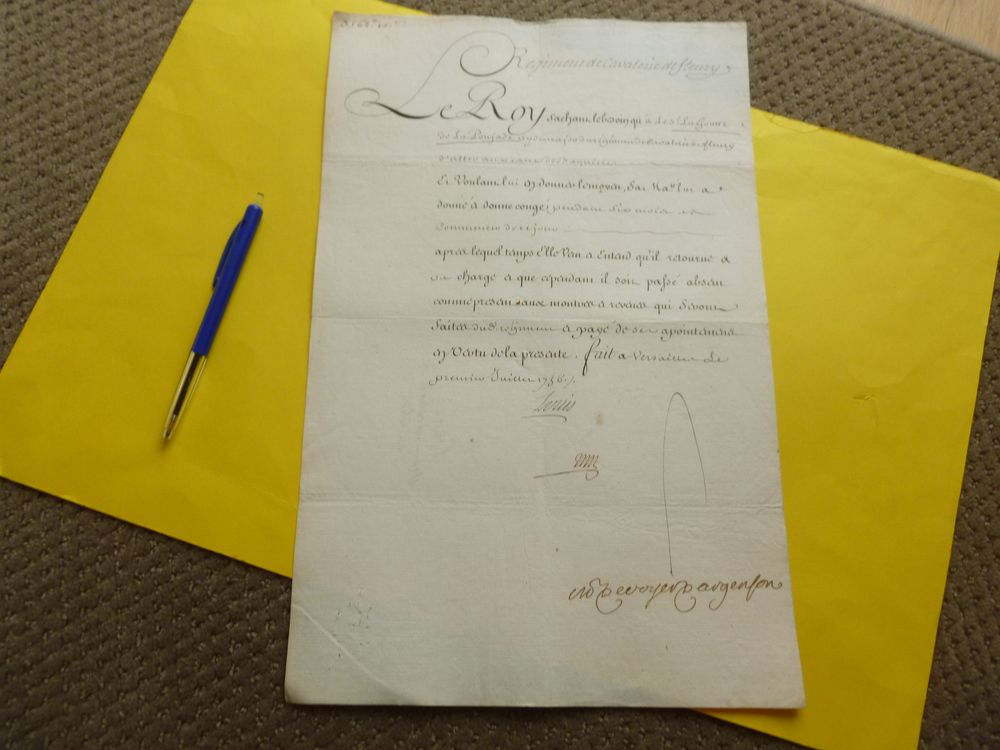 Regiment de Cavalerie de fleury
Le Roy sachant le besoin qu'a le Sr
de La Major du regiment de Cavalerie de fleury
d'aller aux eaux de
Et Voulant lui en donner le moyen, Sa Maté lui a
donné & donne congé pendant Six mois et
de sejour
apres lequel temps Elle Veut & Entend qu'il retourne a
sa charge & que cependant il soit passé absent
comme present aux montres & reveues qui Seront
faites dud regiment & payé de ses apointemens
en Vertu de la presente. fait a Versailles Le
premier Juillet 1756 /.
Louis
M De voyer D argenson